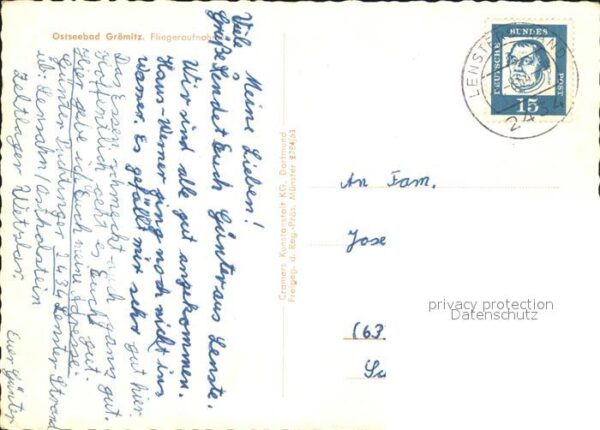 Ostseebad Grömitz. Fliegeraufnahme
Meine Lieben!
Viele
Grüße sendet Euch Günter aus Lenste.
Wir sind alle gut angekommen.
Haus-Werner ging noch nicht ins
Wasser. Es gefällt mir sehr gut hier.
Das Essen schmeckt auch ganz gut.
Hoffentlich geht es Euch gut.
Hier gebe ich Euch meine Adresse:
Günter 2434 Lenster Strand
üb. Lensahn/Ostholstein
Zeltlager Wetzlar.
Euer Günter
Cramers Kunstanstalt KG. Dortmund
Freigeg. d. Reg.-Präs. Münster 2764/63
DEUTSCHE BUNDES POST
15
LENSTE
An Fam.
Jose
(63
privacy protection
Datenschutz